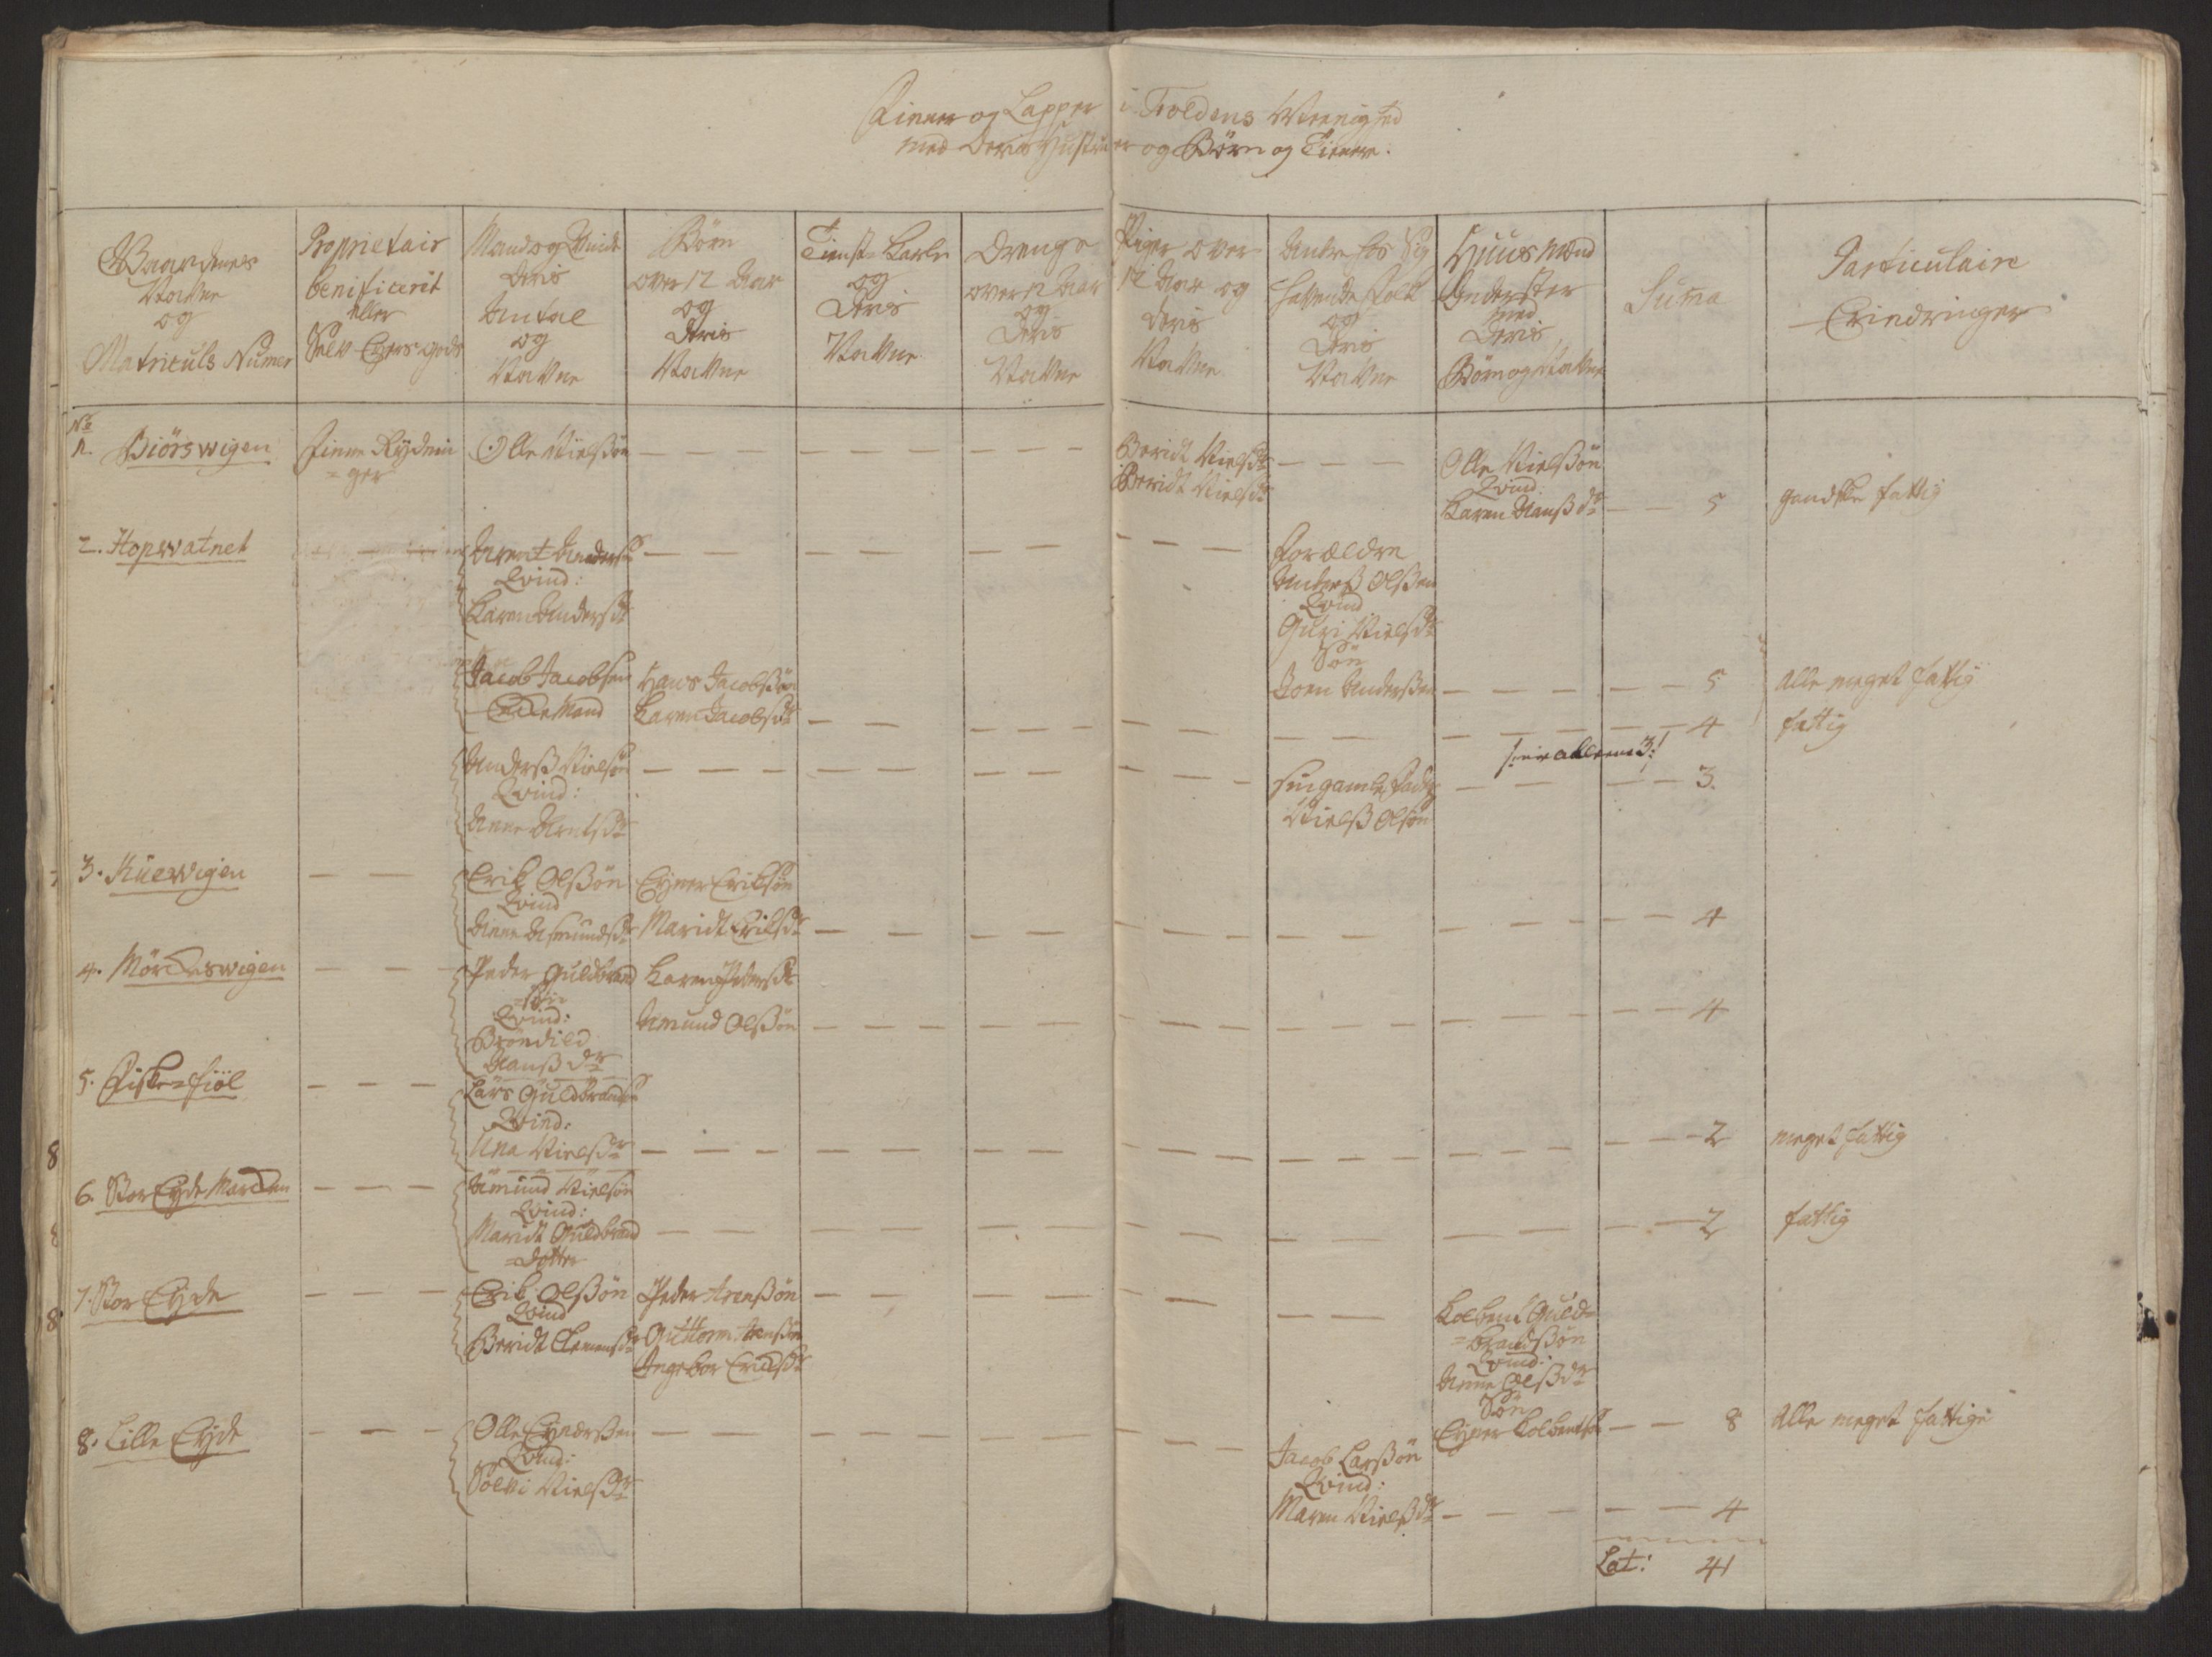 Finner og Lapper i Foldens Menighed
med Deris Hustruer og Børn og Tienere.
Gaardenes Nafne og Matriculs Numer
Proprietair benificerit eller Selv Eyers gods
Mand og Qvinde Deris Antal og Nafne
Børn over 12 Aar og Deris Nafne
Tienst-Karle og Deris Nafne
Drenge over 12 Aar og Deris Nafne
Piger over 12 Aar og deris Nafne
Andre hos Sig hafvende folk og Deris Nafne
Huusmænd Inderster med Deris Børn og Nafne
Suma
Particulaire Erindringer
No
1. Biörswigen
Finne Rydnin
=ger
Olle Nielßøn
Beridt Nielsdr
Beridt Nielsdr
Olle Nielßøn
Qvind:
Karen Hanßdr
5
gandske fattig
2. Hopwatnet
Arent Anderss
Qvind:
Karen Andersdr
Forældre
Anderß Olßen
Qvind
Guri Nielsdr
Søn
Joen Anderßen
5
Alle meget fattig
Jacob Jacobsen
Encke Mand
Hans Jacobßøn
Karen Jacobsdr
4
fattig
Anderß Nielsøn
Qvind:
Anne Arntsdr
sin gamle Fader
Nielß Olsøn
3.
3. Kuewigen
Erik Olßøn
Qvind
Anne Asmundsdr
Eyner Eriksøn
Maridt Eriksdr
4
4. Mörckeswigen
Peder Guldbrand
=søn
Qvind:
Brøndild
Hanßdr
Karen Pedersdr
Amund Olßøn
4
5. Fiske=fiöl
Lars Guldbrands
Qvind:
Una Nielsdr
2
meget fattig
6. Stor Eyde Marcken
Amund Nielsøn
Qvind:
Maridt Guldbrand
=dotter
2
fattig
7. Stor Eyde
Erik Olßøn
Qvind
Beridt Clemensdr
Peder Arenßøn
Guttorm Arenßøn
Ingebor Ericksdr
Kolbent Guld=
=brandßøn
Qvind:
Anne Olßdr
Søn
Eyner Kolbents
8
Alle meget fattige
8. Lille Eyde
Olle Eynerßen
Qvind:
Sølvi Nielsdr
Jacob Larßøn
Qvind:
Maren Nielßdr
4
Lat: 41